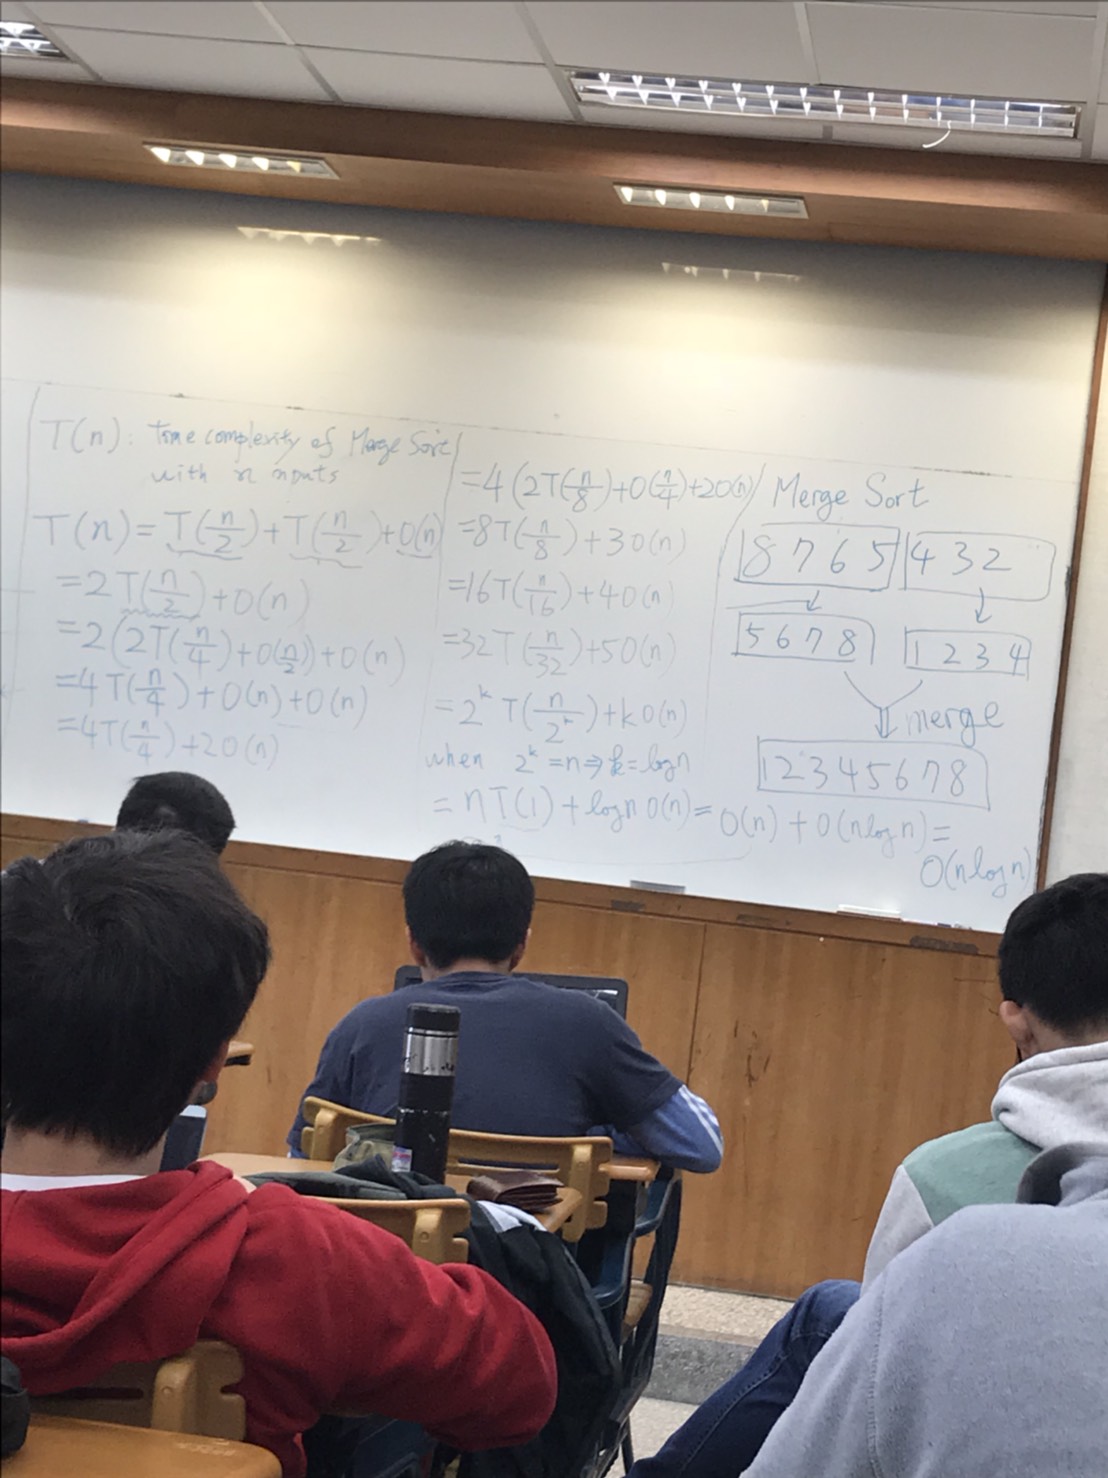 T(n): Time complexity of Merge Sort
with n inputs
T(n) = T(n/2) + T(n/2) + O(n)
= 2T(n/2) + O(n)
= 2(2T(n/4) + O(n/2)) + O(n)
= 4T(n/4) + O(n) + O(n)
= 4T(n/4) + 2O(n)
= 4(2T(n/8) + O(n/4)) + 2O(n)
= 8T(n/8) + 3O(n)
= 16T(n/16) + 4O(n)
= 32T(n/32) + 5O(n)
= 2^k T(n/2^k) + kO(n)
when 2^k = n ⇒ k = log n
= nT(1) + log n O(n) = O(n) + O(n log n) =
O(n log n)
Merge Sort
8 7 6 5 4 3 2
5 6 7 8 1 2 3 4
merge
1 2 3 4 5 6 7 8